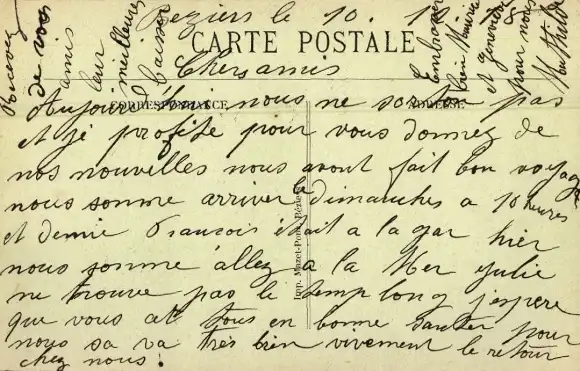 Beziers le 10.
CARTE POSTALE
Chers amis
CORRESPONDANCE
ADRESSE
Aujourd'hui nous ne sorton pas
et je profite pour vous donnez de
nos nouvelles nous avont fait bon voyage
nous somme arriver le dimanches a 10 heures
et demie Francois était a la gar hier
nous somme allez a la Mer Julie
ne trouve pas le temp long j'espere
que vous at tous en bonne santer pour
nous sa va très bien vivement le retour
chez nous.
Recevez
de vos
amis
leur
meilleures
baiser
Embrasser
bien Maurice
et genevieve
pour nous
Mathilde
Imp. Mazet-Pons, Béziers